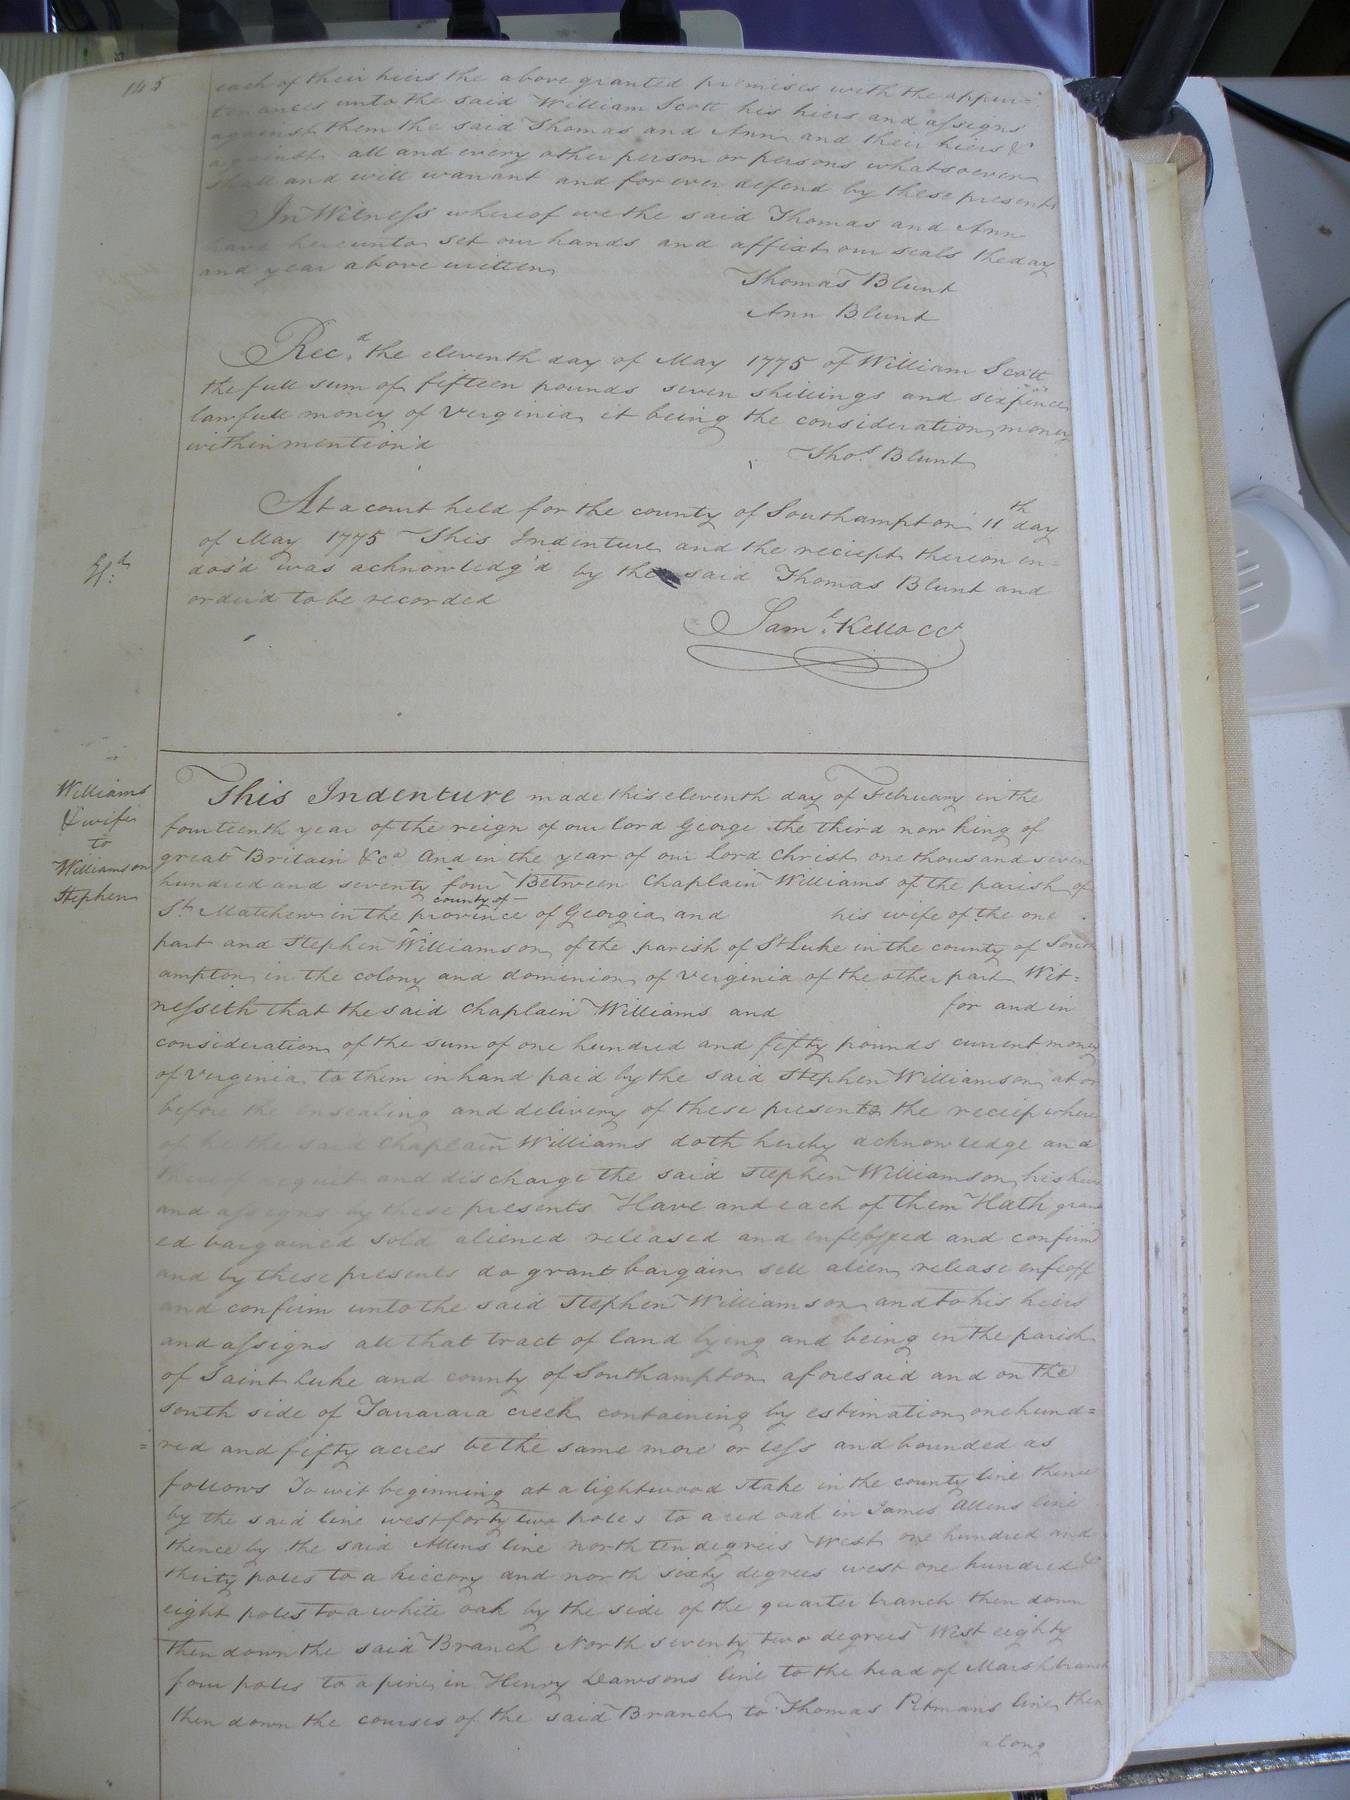 145
each of their hiers the above granted premises with the appur=
tenances unto the said William Scott his hiers and assigns
against them the said Thomas and Ann and their hiers &c
against all and every other person or persons whatsoever
shall and will warrant and for ever defend by these presents
In Witness whereof we the said Thomas and Ann
have hereunto set our hands and affixt our seals the day
and year above written
Thomas Blunt
Ann Blunt
Rec.d the eleventh day of May 1775 of William Scott
the full sum of fifteen pounds seven shillings and sixpence
lawfull money of Verginia it being the consideration money
within mention'd
Tho.s Blunt
At a court held for the county of Southampton 11th day
of May 1775 This Indenture and the reciept thereon en=
dos'd was acknowledg'd by the said Thomas Blunt and
order'd to be recorded
Sam.l Kello CC
Williams
& wife
to
Williamson
Stephen
This Indenture made this eleventh day of February in the
fourteenth year of the reign of our lord George the third now king of
great Britain &c.a And in the year of our Lord Christ one thousand seven
hundred and seventy four Between Chaplain Williams of the parish of
county of
St. Matthew in the province of Georgia and his wife of the one
part and Stephen Williamson of the parish of St Luke in the county of South
ampton in the colony and dominion of Verginia of the other part Wit=
nesseth that the said Chaplain Williams and for and in
consideration of the sum of one hundred and fifty pounds current money
of Verginia to them in hand paid by the said Stephen Williamson at or
before the ensealing and delivery of these presents the reciep where
of he the said Chaplain Williams doth hereby acknowledge and
thereof acquit and discharge the said Stephen Williamson his hiers
and assigns by these presents Have and each of them Hath grant
ed bargained sold aliened released and enfeoffed and confirm
and by these presents do grant bargain sell alien release enfeoff
and confirm unto the said Stephen Williamson and to his heirs
and assigns all that tract of land lying and being in the parish
of Saint Luke and county of Southampton aforesaid and on the
south side of Tarrarara creek containing by estimation one hund=
=red and fifty acres be the same more or less and bounded as
follows To wit beginning at a lightwood stake in the county line thence
by the said line west forty two poles to a red oak in James Allens line
thence by the said Allens line north ten degreis West one hundred and
thirty poles to a hiccory and north sixty degrees west one hundred &
eight poles to a white oak by the side of the quarter branch then down
then down the said Branch North seventy two degrees West eighty
four poles to a pine in Henry Dawsons line to the head of Marsh branch
then down the courses of the said Branch to Thomas Pitmans line then
along